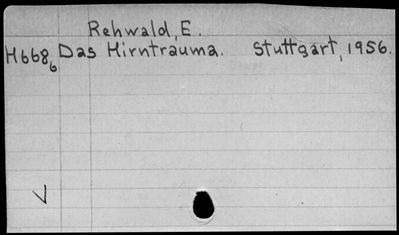 Rehwald, E.
H6686 Das Hirntrauma. Stuttgart, 1956.